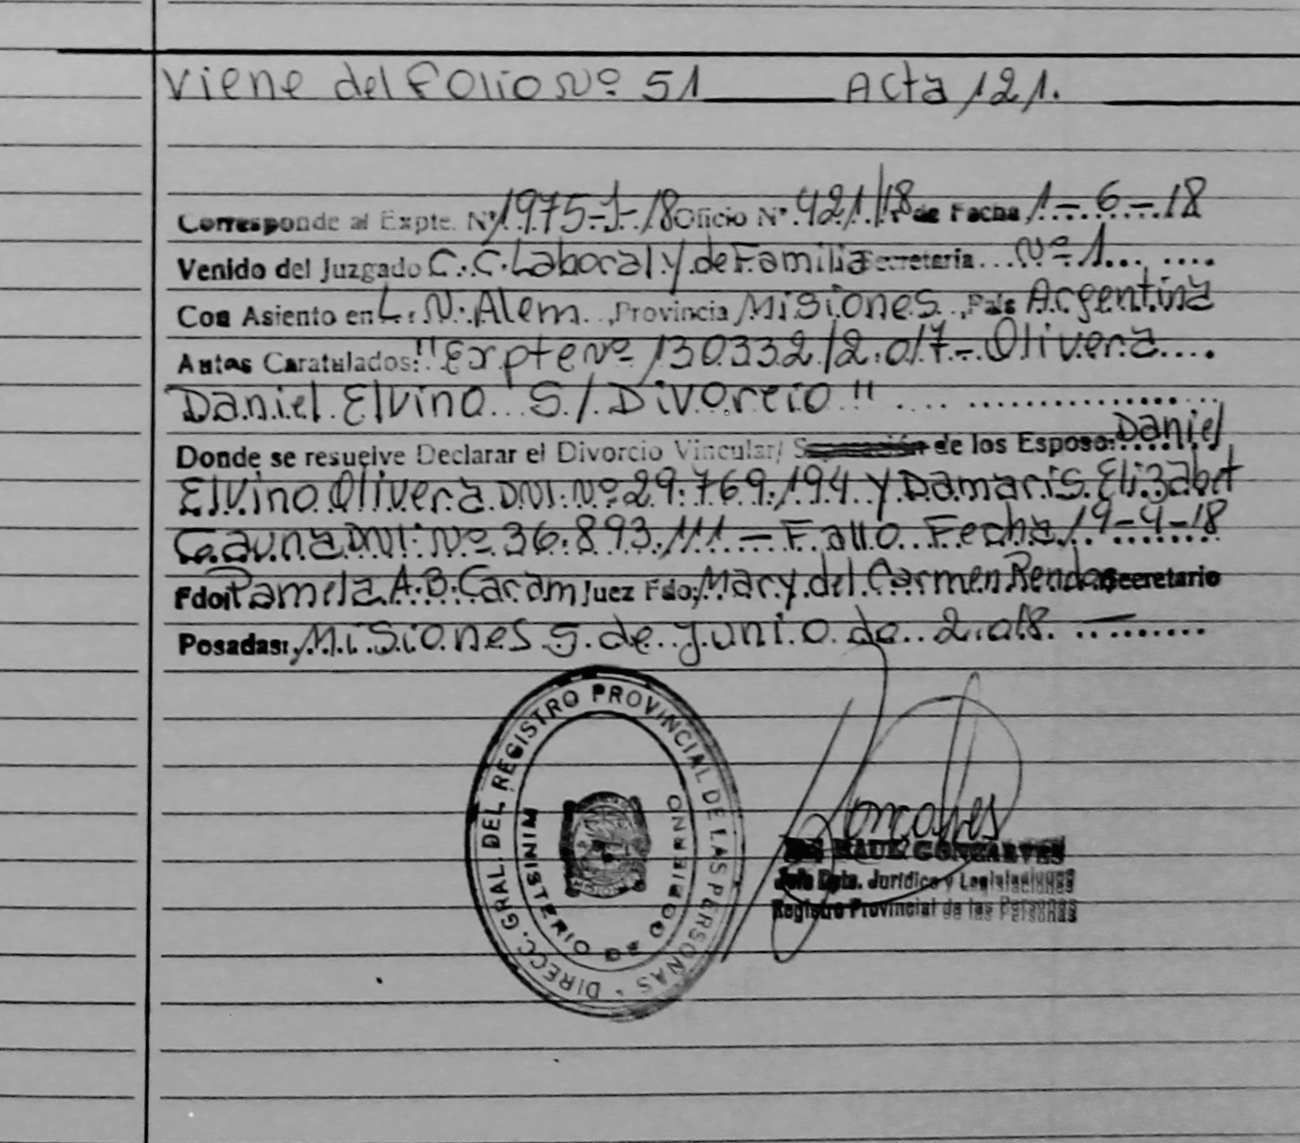 Viene del Folio Nº 51 Acta 121.
Corresponde al Expte. Nº 1975-J-18 Oficio Nº 421/18 de Fecha 1-6-18
Venido del Juzgado C.C. Laboral y de Familia Secretaria Nº 1
Con Asiento en L.N. Alem, Provincia Misiones, País Argentina
Autos Caratulados: "Expte Nº 130332/2017 - Olivera
Daniel Elvino S/ Divorcio"
Donde se resuelve Declarar el Divorcio Vincular/ Separación de los Esposos: Daniel
Elvino Olivera DNI: Nº 29.769.194 y Damaris Elizabet
Gauna DNI: Nº 36.893.111 - Fallo Fecha 19-4-18
Fdo: Pamela A.B. Caram Juez Fdo: Mary del Carmen Rendas Secretario
Posadas: Misiones 5 de Junio de 2018.
DIRECC. GRAL. DEL REGISTRO PROVINCIAL DE LAS PERSONAS -
MINISTERIO DE GOBIERNO
Goncalves
RAUL GONCARVES
Jefe Dpto. Jurídico y Legislaciones
Registro Provincial de las Personas